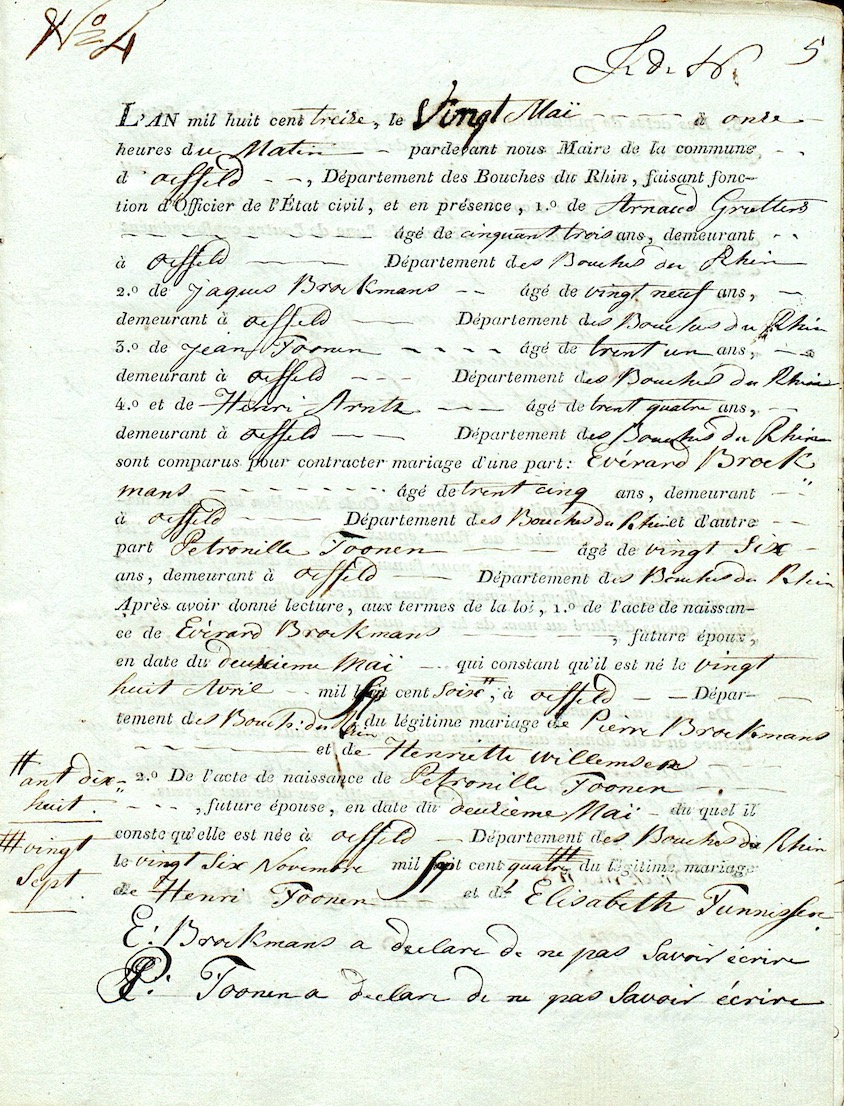 No 4
5
L'AN mil huit cent treize, le Vingt Maï - - - - à onze -
heures du Matin - pardevant nous Maire de la commune - -
d' oeffeld - - , Département des Bouches du Rhin, faisant fonc-
tion d'Officier de l'État civil, et en présence, 1.o de Arnaud Grutters
- - - âgé de cinquant trois ans, demeurant - -
à oeffeld - - Département des Bouches du Rhin
2.o de Jaques Brockmans - - âgé de vingt neuf ans, -
demeurant à oeffeld - - Département des Bouches du Rhin
3.o de Jean Toonen - - - - âgé de trent un ans, - -
demeurant à oeffeld - - - Département des Bouches du Rhin
4.o et de Henri Arnth - - - âgé de trent quatre ans, -
demeurant à oeffeld - - Département des Bouches du Rhin
sont comparus pour contracter mariage d'une part : Evérard Brock
mans - - - - - - âgé de trent cinq ans, demeurant - -
à oeffeld - - Département des Bouches du Rhin et d'autre - -
part Petronille Toonen - - âgé de vingt Six -
ans, demeurant à oeffeld - - Département des Bouches du Rhin
Après avoir donné lecture, aux termes de la loi, 1.o de l'acte de naissan-
ce de Evérard Brockmans - - , future époux,
en date du deuxieme Maï - - qui constant qu'il est né le vingt
huit Avril - - mil Sept cent Soix #, à oeffeld - - Dépar-
tement des Bouch: du Rhin du légitime mariage de Pierre Brockmans
- - - et de Henriette Willemsen -
# ant dix
huit.
2.o De l'acte de naissance de Petronille Toonen -
- - - , future épouse, en date du deuxième Mai - du quel il
conste qu'elle est née à oeffeld - Département des Bouches du Rhin
# vingt
Sept
le vingt Six Novembre mil Sept cent quatre # du légitime mariage
de Henri Toonen - et d' Elisabeth Tunnissen
E: Brockmans a declare de ne pas Savoir écrire
P: Toonen a declare de ne pas Savoir écrire